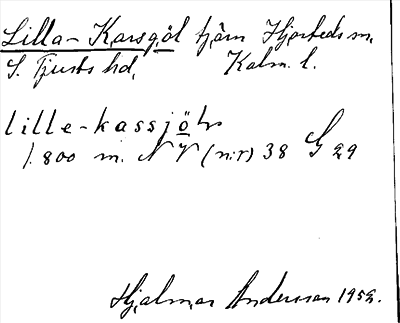 Lilla-Karsgöl tjärn Hjorteds sn.
S. Tjusts hd. Kalm. l.
lille-kassjöln
1. 800 m. N V (n:r) 38 G 29
Hjalmar Andersson 1952.